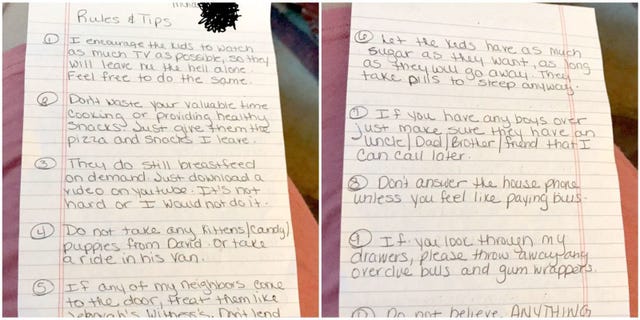 Rules & Tips
① I encourage the kids to watch
as much TV as possible, so they
will leave me the hell alone.
Feel free to do the same.
② Don't waste your valuable time
cooking or providing healthy
snacks. Just give them the
pizza and snacks I leave.
③ They do still breastfeed
on demand. Just download a
video on youtube. It's not
hard or I would not do it.
④ Do not take any kittens/candy/
puppies from David. Or take
a ride in his van.
⑤ If any of my neighbors come
to the door, treat them like
Jehovah's Witness's. Don't lend
⑥ Let the kids have as much
sugar as they want, as long
as they will go away. They
take pills to sleep anyway.
⑦ If you have any boys over
just make sure they have an
Uncle/Dad/Brother/friend that I
can call later.
⑧ Don't answer the house phone
unless you feel like paying bills.
⑨ If you look through my
drawers, please throw away any
overdue bills and gum wrappers.
Do not believe ANYTHING